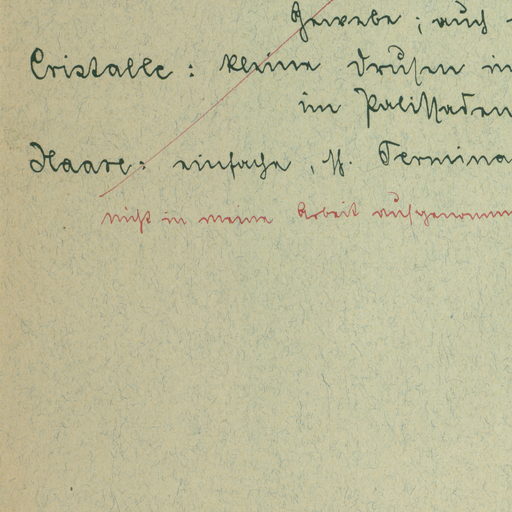 Gewebe ; auch
Cristalle : kleine Drusen in
im Palissaden
Haare : einfache , s. Termina
nicht in meine Arbeit aufgenomm